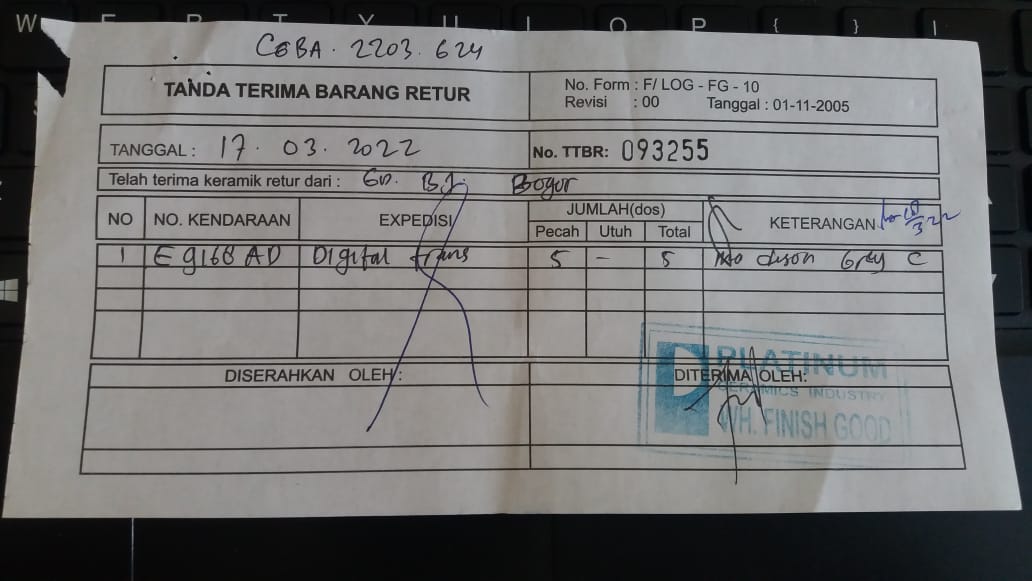 W E R T Y U I O P { } I
CBBA . 2203. 624
TANDA TERIMA BARANG RETUR
No. Form : F/ LOG - FG - 10
Revisi : 00 Tanggal : 01-11-2005
TANGGAL : 17 . 03 . 2022
No. TTBR: 093255
Telah terima keramik retur dari : Gd. BJ. Bogor
NO NO. KENDARAAN EXPEDISI JUMLAH(dos) KETERANGAN
Pecah Utuh Total
1 E 9168 AD Digital trans 5 - 5 Grey C
DISERAHKAN OLEH : DITERIMA OLEH:
PLATINUM
CERAMICS INDUSTRY
WH. FINISH GOOD